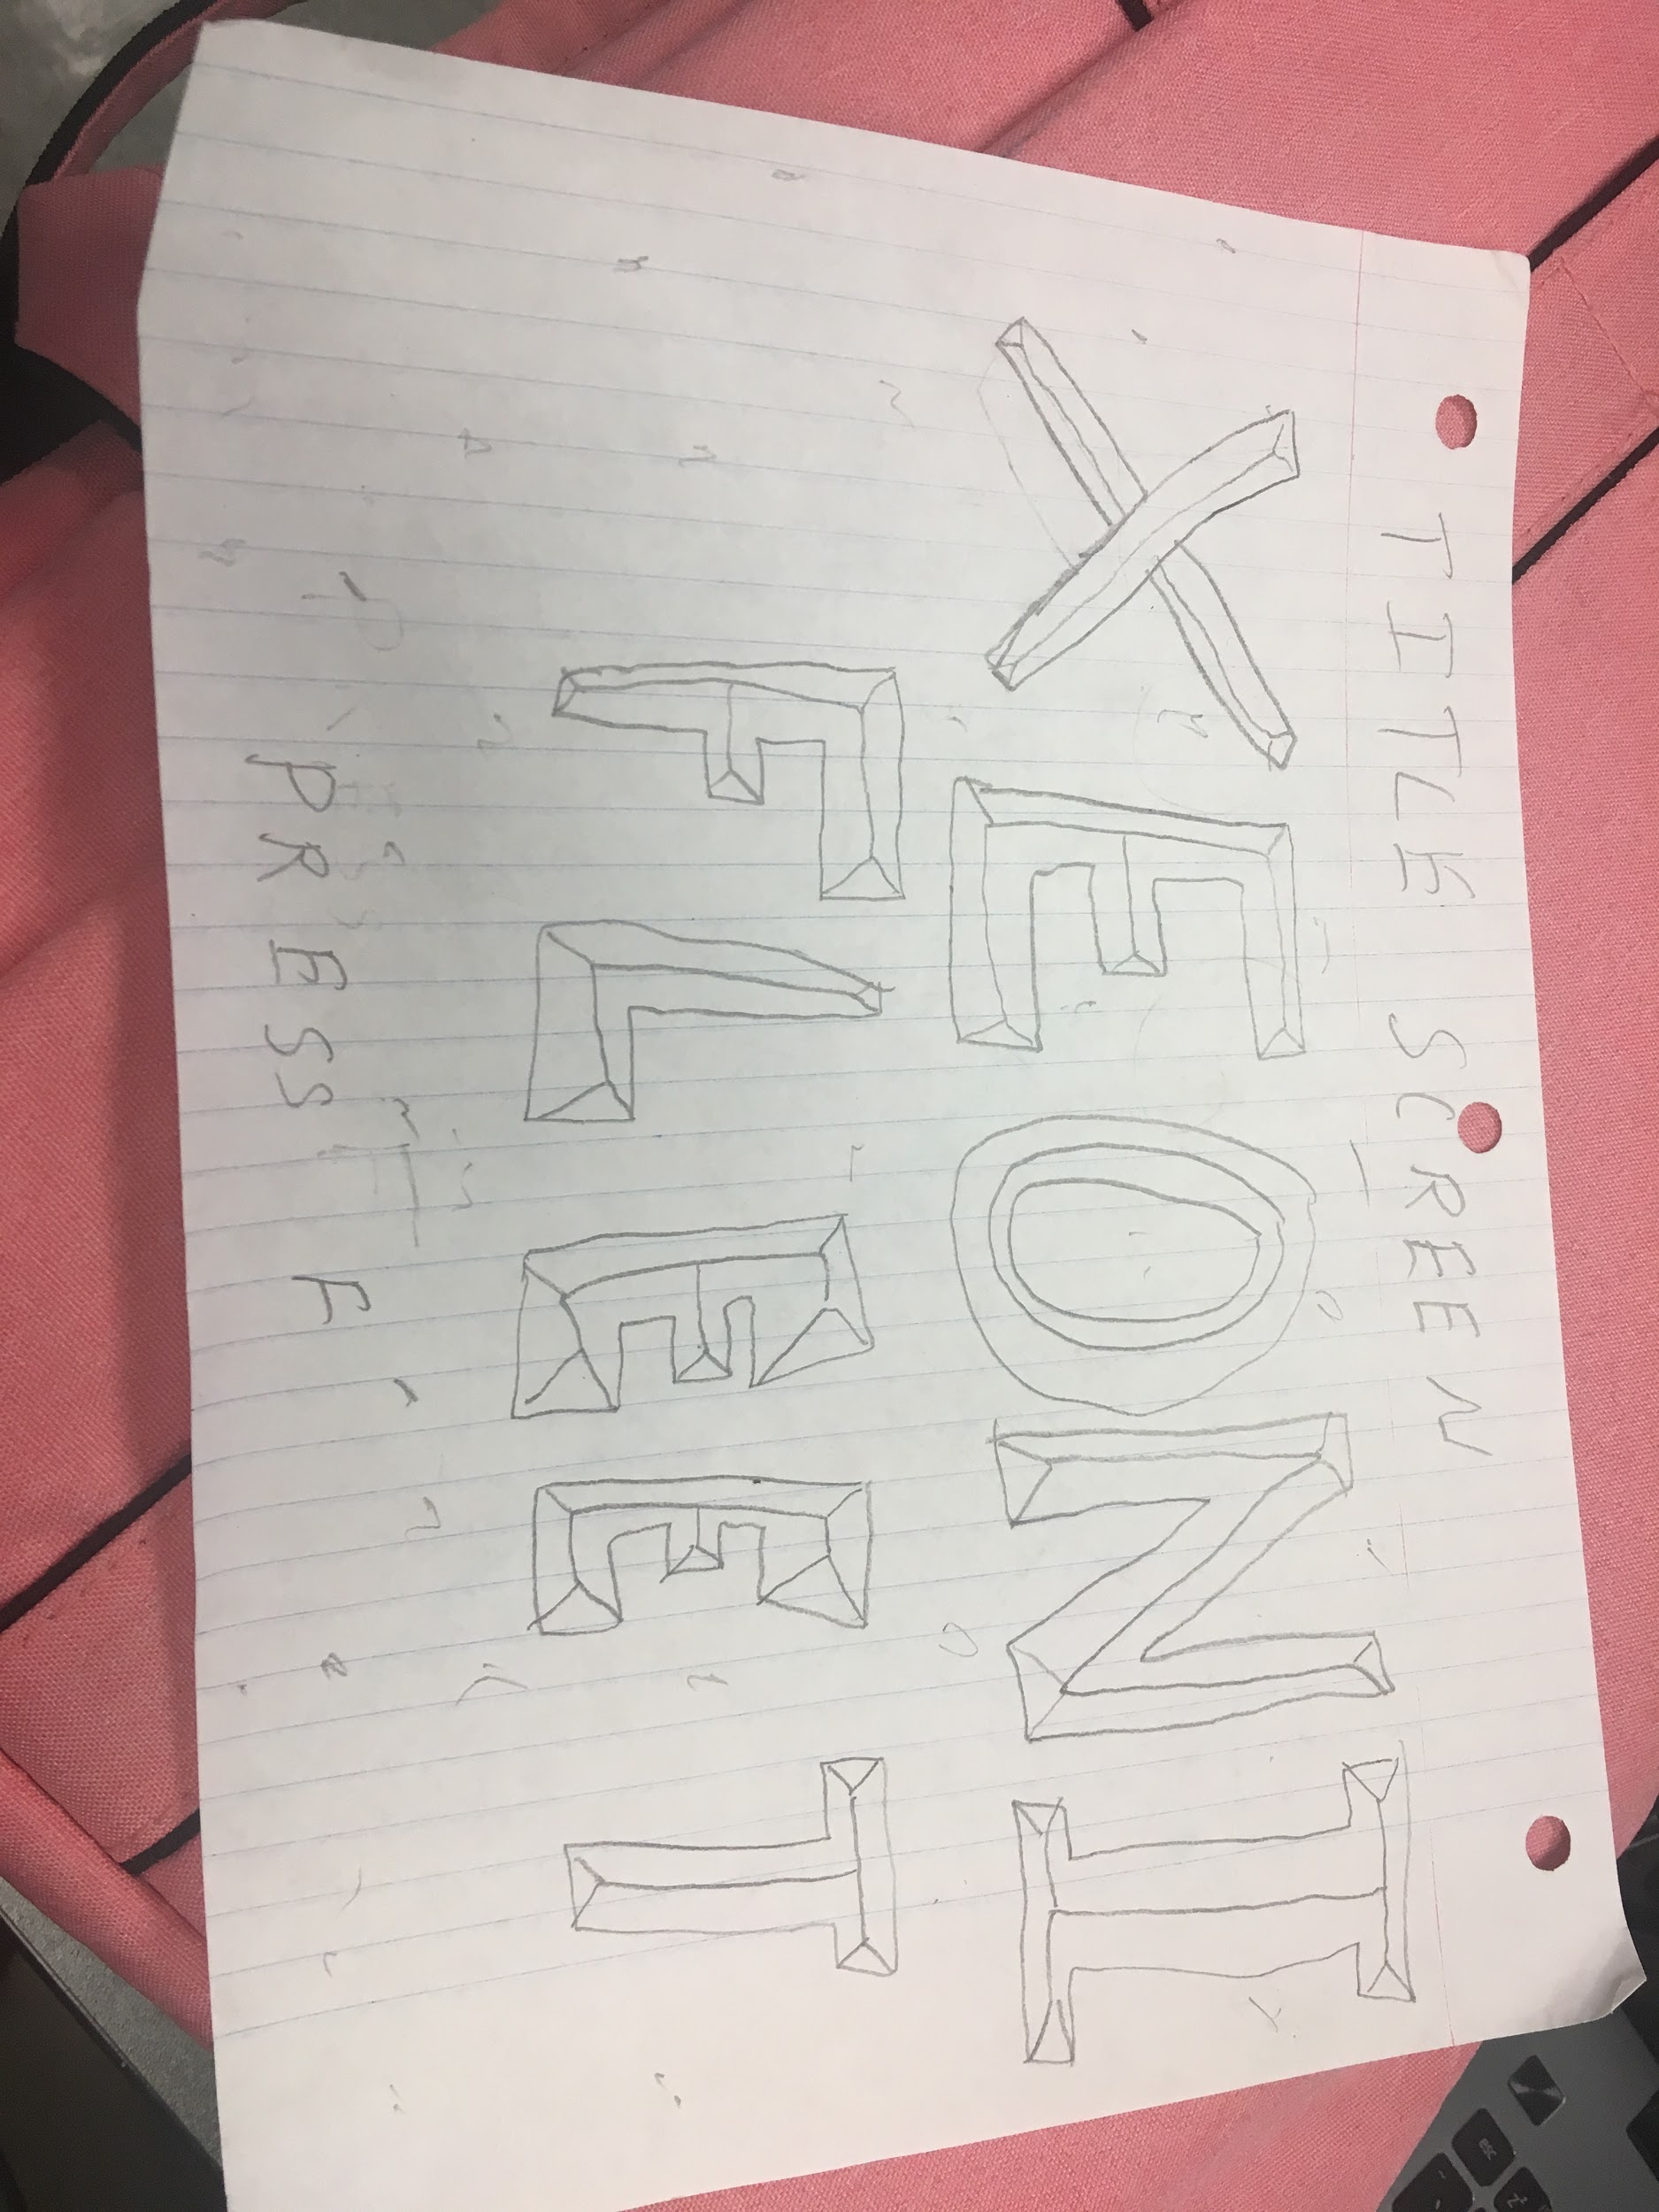 TITLE SCREEN
XEONI
FLEET
PRESS F